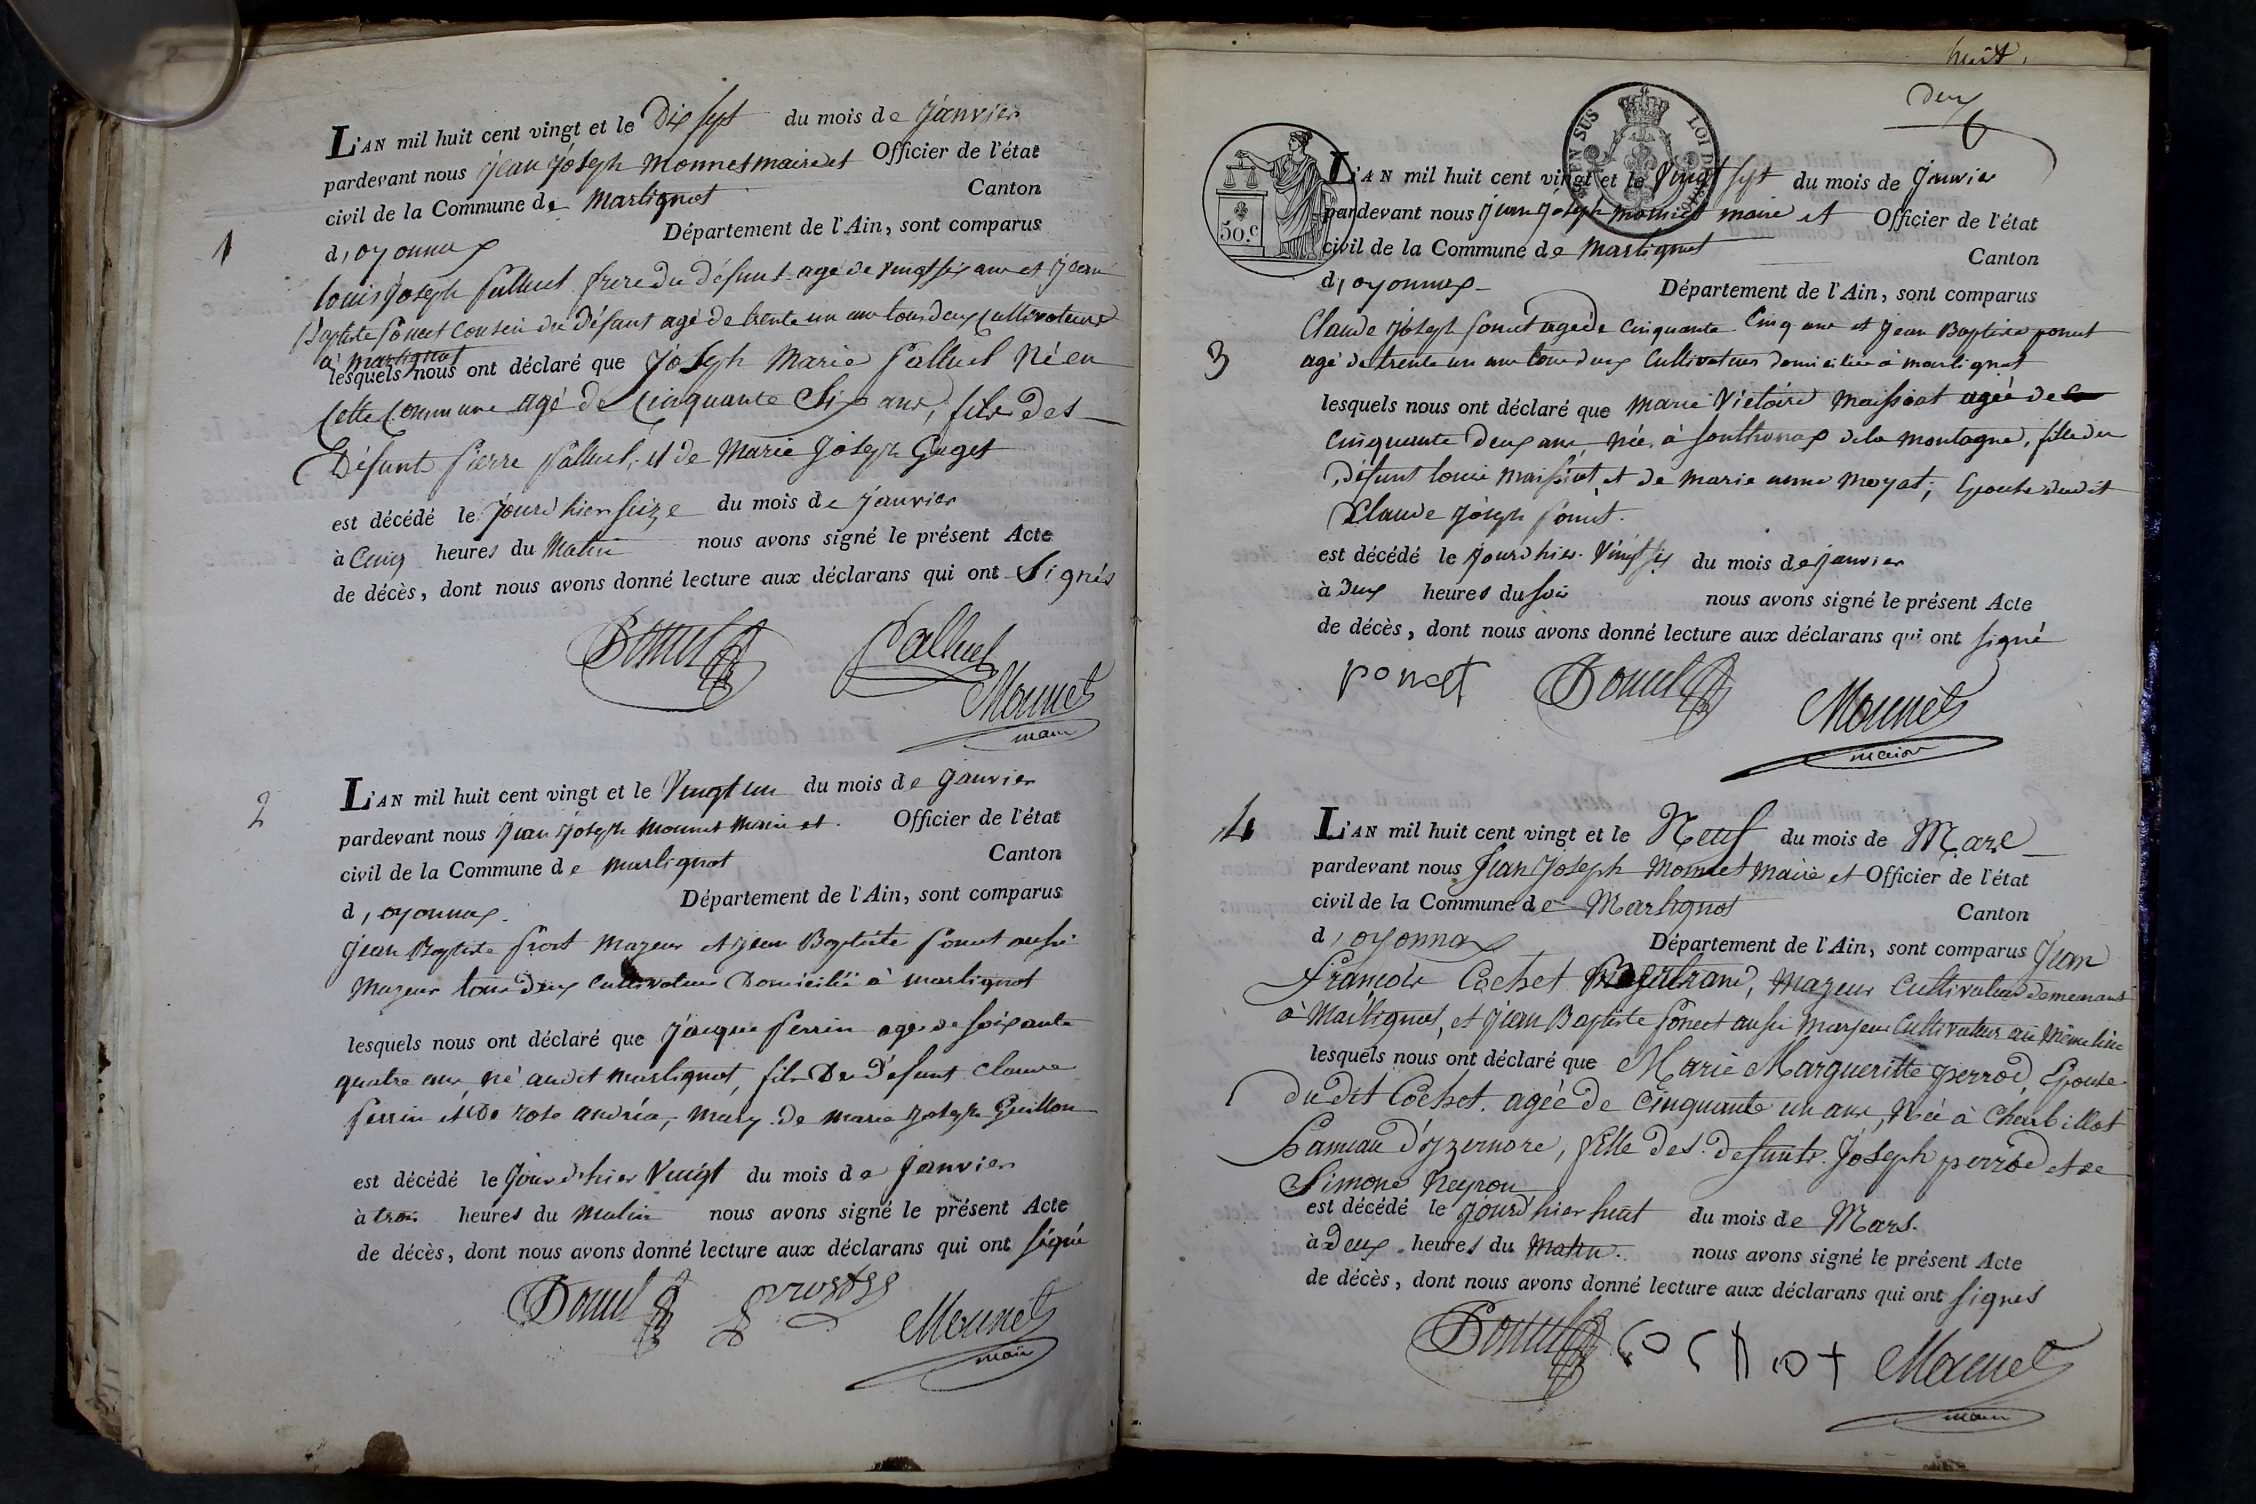 1
L'AN mil huit cent vingt et le Dix sept du mois de Janvier
pardevant nous Jean Joseph Monnet maire et Officier de l'état
civil de la Commune de Martignat Canton
d'oyonnax Département de l'Ain, sont comparus
louis Joseph Palluel frere du défunt agé de vingt six ans et Jean
Baptiste Poncet Cousin du Défunt agé de trente un ans tous deux Cultivateurs
à Martignat
lesquels nous ont déclaré que Joseph Marie Palluel Né en
Cette Commune agé de Cinquante Six ans, fils des
Défunt Pierre Palluel, et de Marie Joseph Guget
est décédé le Jourd'hier Seize du mois de Janvier
à Cinq heures du Matin nous avons signé le présent Acte
de décès, dont nous avons donné lecture aux déclarans qui ont Signés
Poncet Palluel
Monnet
maire
2
L'AN mil huit cent vingt et le Vingt un du mois de Janvier
pardevant nous Jean Joseph Monnet Maire et Officier de l'état
civil de la Commune de Martignat Canton
d'oyonnax. Département de l'Ain, sont comparus
Jean Baptiste Prost Majeur et Jean Baptiste Poncet aussi
Majeur tous deux Cultivateurs Domiciliés à Martignat
lesquels nous ont déclaré que Jacque Perrin agé de soixante
quatre ans né audit Martignat, fils De Défunt Claude
Perrin et De rose andréa, Mary de Marie Joseph Guillon
est décédé le Jourd'hier Vingt du mois de Janvier
à trois heures du Matin nous avons signé le présent Acte
de décès, dont nous avons donné lecture aux déclarans qui ont signé
Poncet prost
Monnet
maire
huit.
Deux
EN SUS LOI DE
50.c
L'AN mil huit cent vingt et le Vingt sept du mois de Janvier
pardevant nous Jean Joseph Monnet maire et Officier de l'état
civil de la Commune de Martignat Canton
d'oyonnax Département de l'Ain, sont comparus
Claude Joseph Poncet agé de Cinquante Cinq ans et Jean Baptiste poncet
3
agé de trente un ans tous deux Cultivateurs domiciliés à Martignat
lesquels nous ont déclaré que Marie Victoire Maissiat agée de
Cinquante Deux ans, née à Sonthonax de la Montagne, fille de
Défunt louis Maissiat et de Marie anne Moyat, Epouse dudit
Claude Joseph Poncet.
est décédé le Jourd'hier Vingt six du mois de Janvier
à Deux heures du Soir nous avons signé le présent Acte
de décès, dont nous avons donné lecture aux déclarans qui ont signé
poncet Poncet Monnet
maire
4
L'AN mil huit cent vingt et le Neuf du mois de Mars
pardevant nous Jean Joseph Monnet Maire et Officier de l'état
civil de la Commune de Martignat Canton
d'oyonnax Département de l'Ain, sont comparus Jean
François Cochet Majeur Cultivateur demeurant
à Martignat, et Jean Baptiste Poncet aussi Marjeur Cultivateur au Même lieu
lesquels nous ont déclaré que Marie Margueritte perrod Epouse
Dudit Cochet. agée de Cinquante un ans, Née à Charbillat
hameau D'izernore, fille des défunts Joseph perrod et de
Simone Neyron
est décédé le Jourd'hier huit du mois de Mars.
à Deux heures du Matin. nous avons signé le présent Acte
de décès, dont nous avons donné lecture aux déclarans qui ont signés
Poncet cochet Monnet
maire